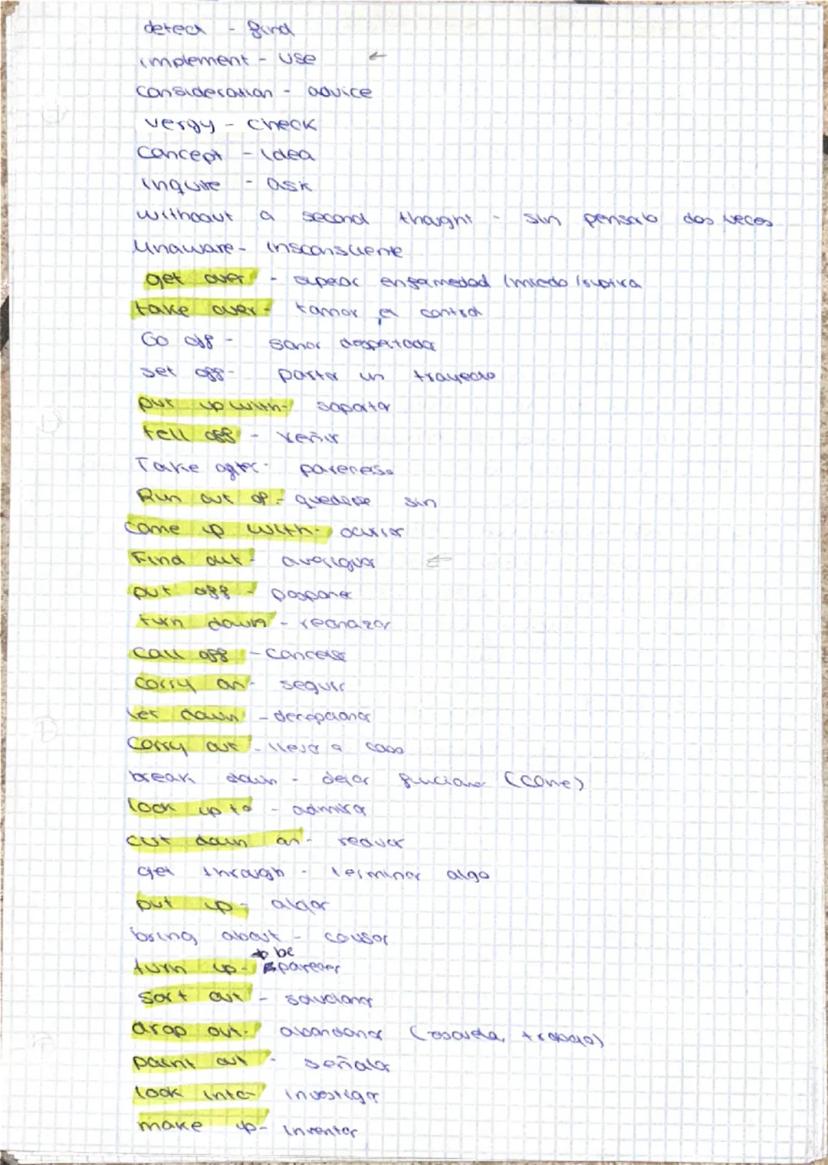 detect - find
implement - use ←
consideration - advice
vergy - check
concept - idea
inquire - ask
without a second thought - sin pensarlo dos veces
Unaware - insconsciente
get over - superar enfermedad / miedo /
take over - tomar el control
Go off - sonar despertador
set off - partir un trayecto
put up with - soportar
tell off - reñir
Take after - parecerse
Run out of - quedarse sin
come up with - ocurrir
Find out - averiguar ←
put off - posponer
turn down - rechazar
call off - cancelar
carry on - seguir
let down - decepcionar
carry out - llevar a cabo
break down - dejar funcionar (coche)
look up to - admirar
cut down on - reducir
get through - terminar algo
put up - alojar
bring about - causar
to be
turn up - aparecer
sort out - solucionar
drop out - abandonar (escuela, trabajo)
point out - señalar
look into - investigar
make up - inventar